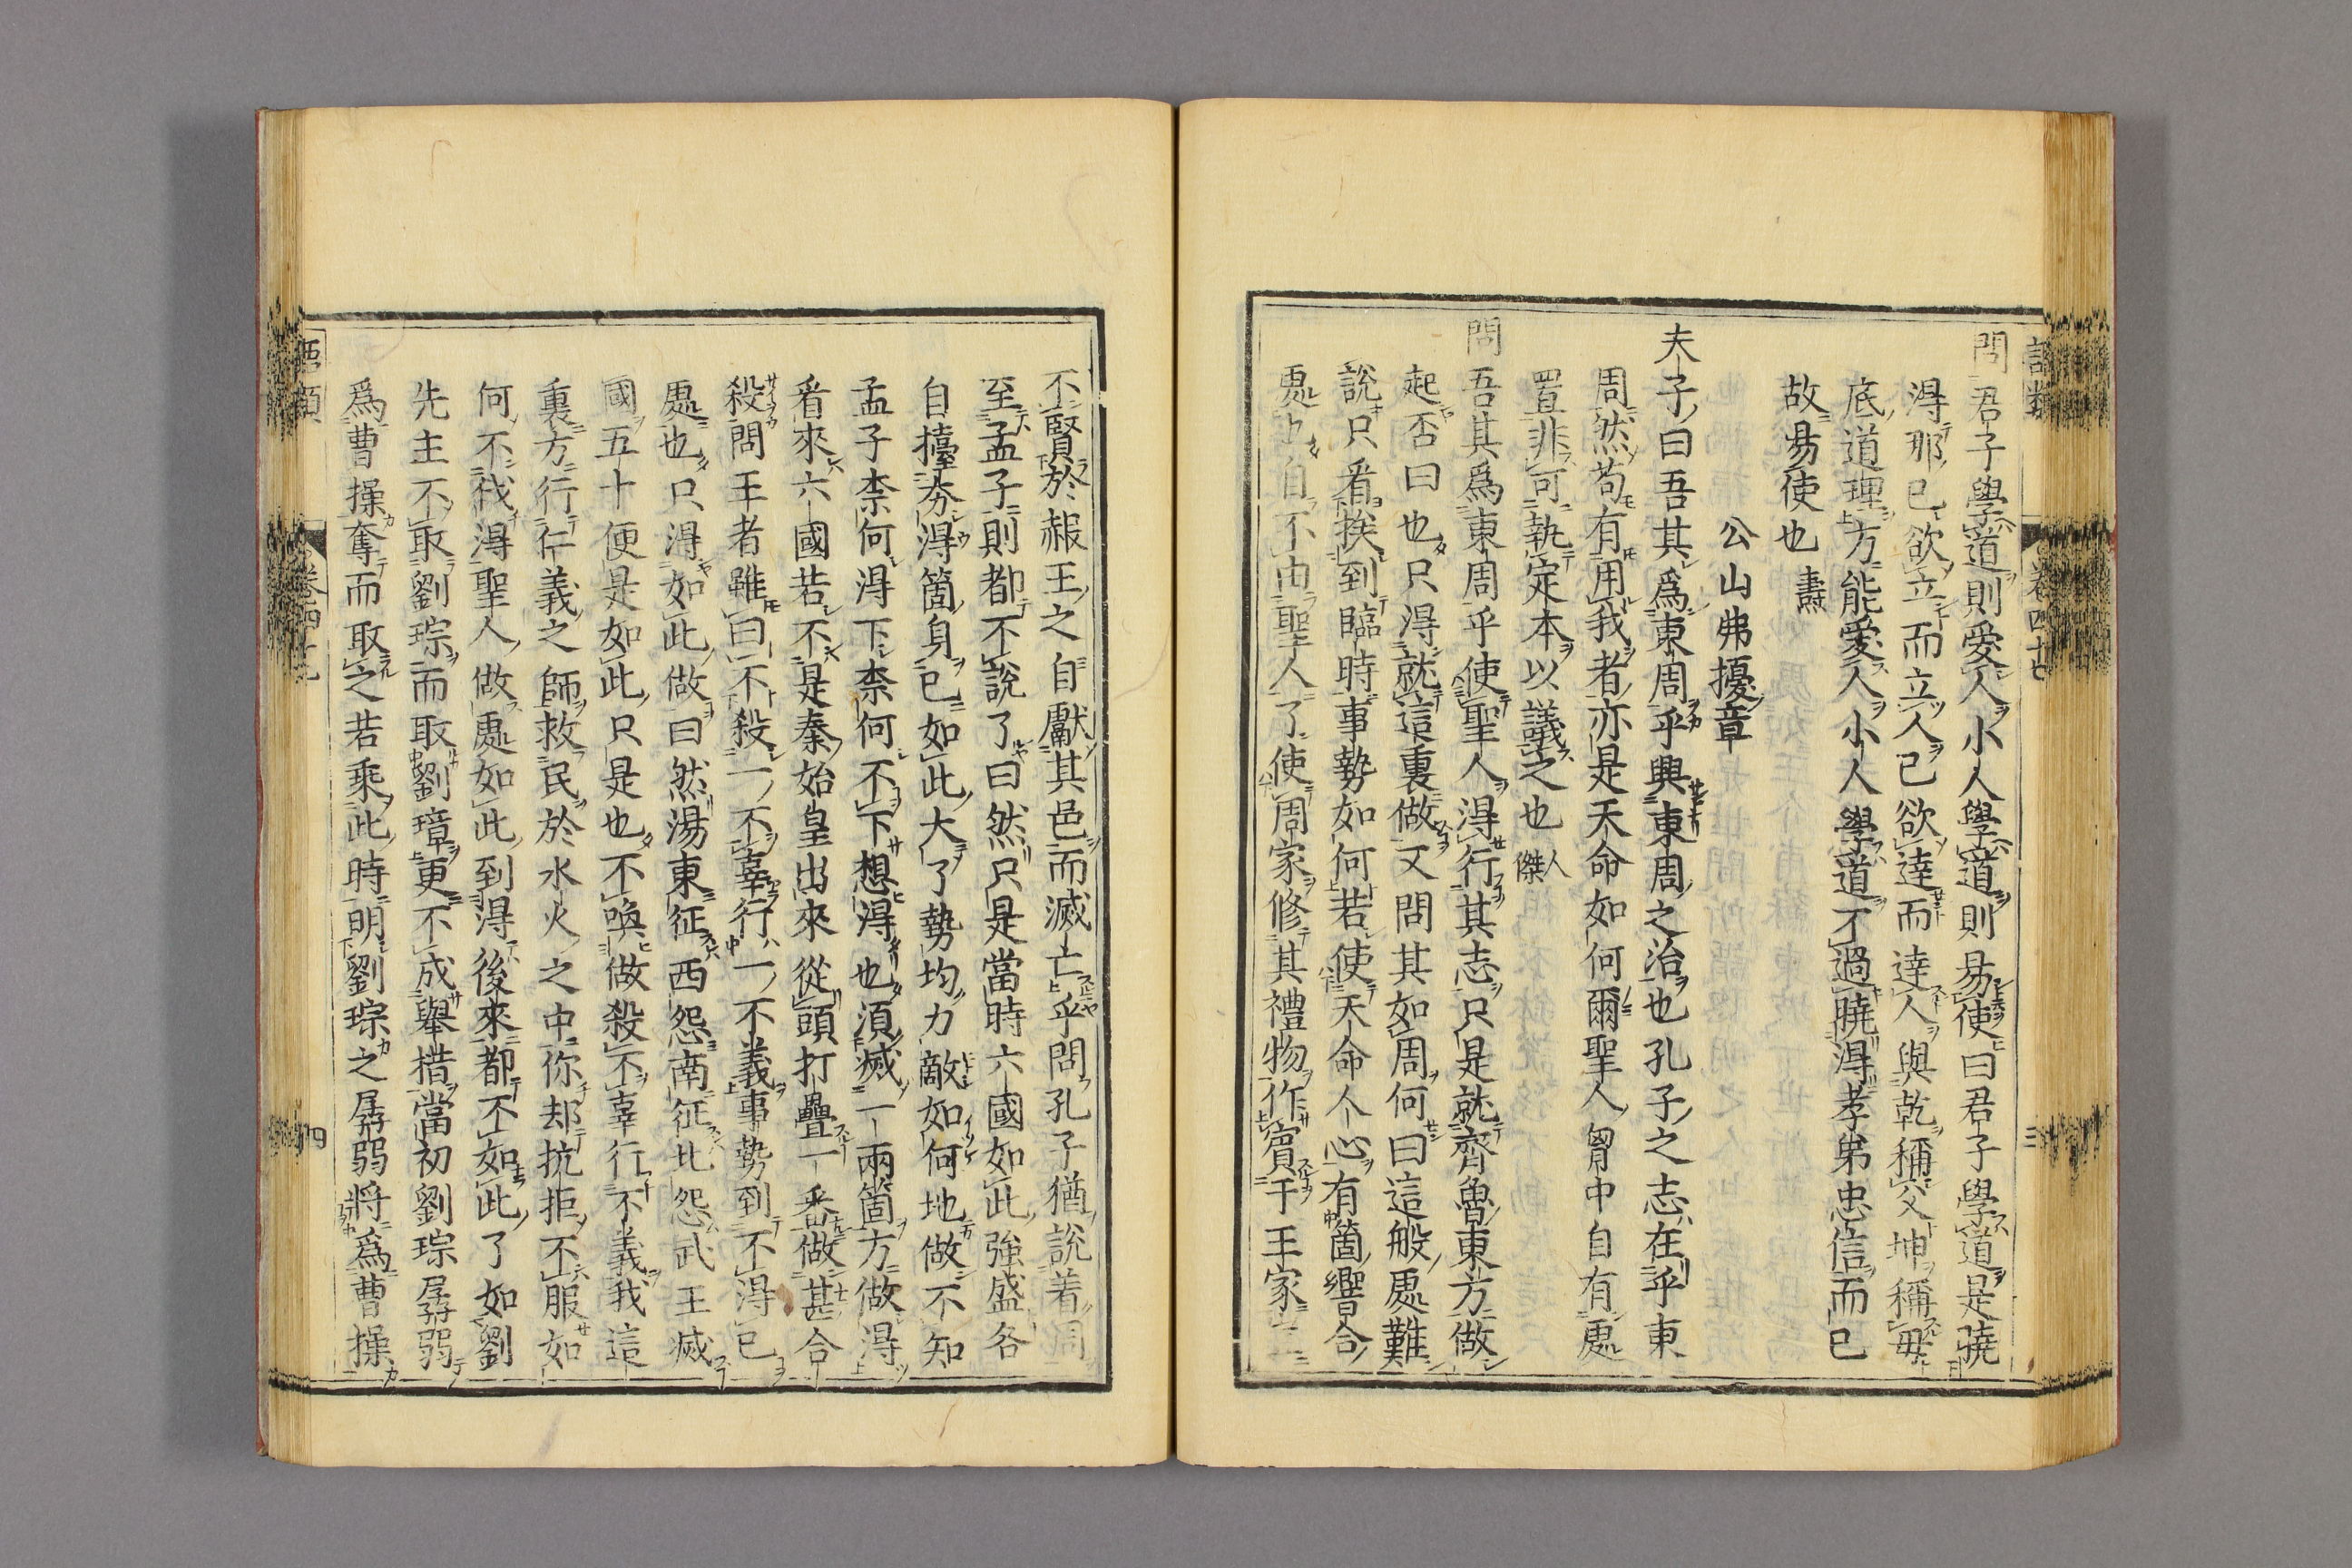 問君子學道則愛人小人學道則易使曰君子學道是曉
得那己欲立而立人己欲達而達人與乾稱父坤稱母
底道理方能愛人小人學道不過曉得孝弟忠信而已
故易使也燾
公山弗擾章
夫子曰吾其爲東周乎興東周之治也孔子之志在乎東
周然苟有用我者亦是天命如何爾聖人胷中自有處
置非可執定本以議之也人傑
問吾其爲東周乎使聖人得行其志只是就齊魯東方做
起否曰也只得就這裏做又問其如周何曰這般處難
說只看挨到臨時事勢如何若使天命人心有箇響合
處也自不由聖人了使周家修其禮物作賓于王家豈
不賢於赧王之自獻其邑而滅亡乎問孔子猶說着周
至孟子則都不說了曰然只是當時六國如此強盛各
自擡夯得箇身己如此大了勢均力敵如何地做不知
孟子柰何得下柰何不下想得也須滅一兩箇方做得
看來六國若不是秦始皇出來從頭打疊一番做甚合
殺問王者雖曰不殺一不辜行一不義事勢到不得已
處也只得如此做曰然湯東征西怨南征北怨武王滅
國五十便是如此只是也不喚做殺不辜行不義我這
裏方行仁義之師救民於水火之中你却抗拒不服如
何不伐得聖人做處如此到得後來都不如此了如劉
先主不取劉琮而取劉璋更不成舉措當初劉琮孱弱
爲曹操奪而取之若乘此時明劉琮之孱弱將爲曹操
語類
卷四十七
三
語類
卷四十七
四